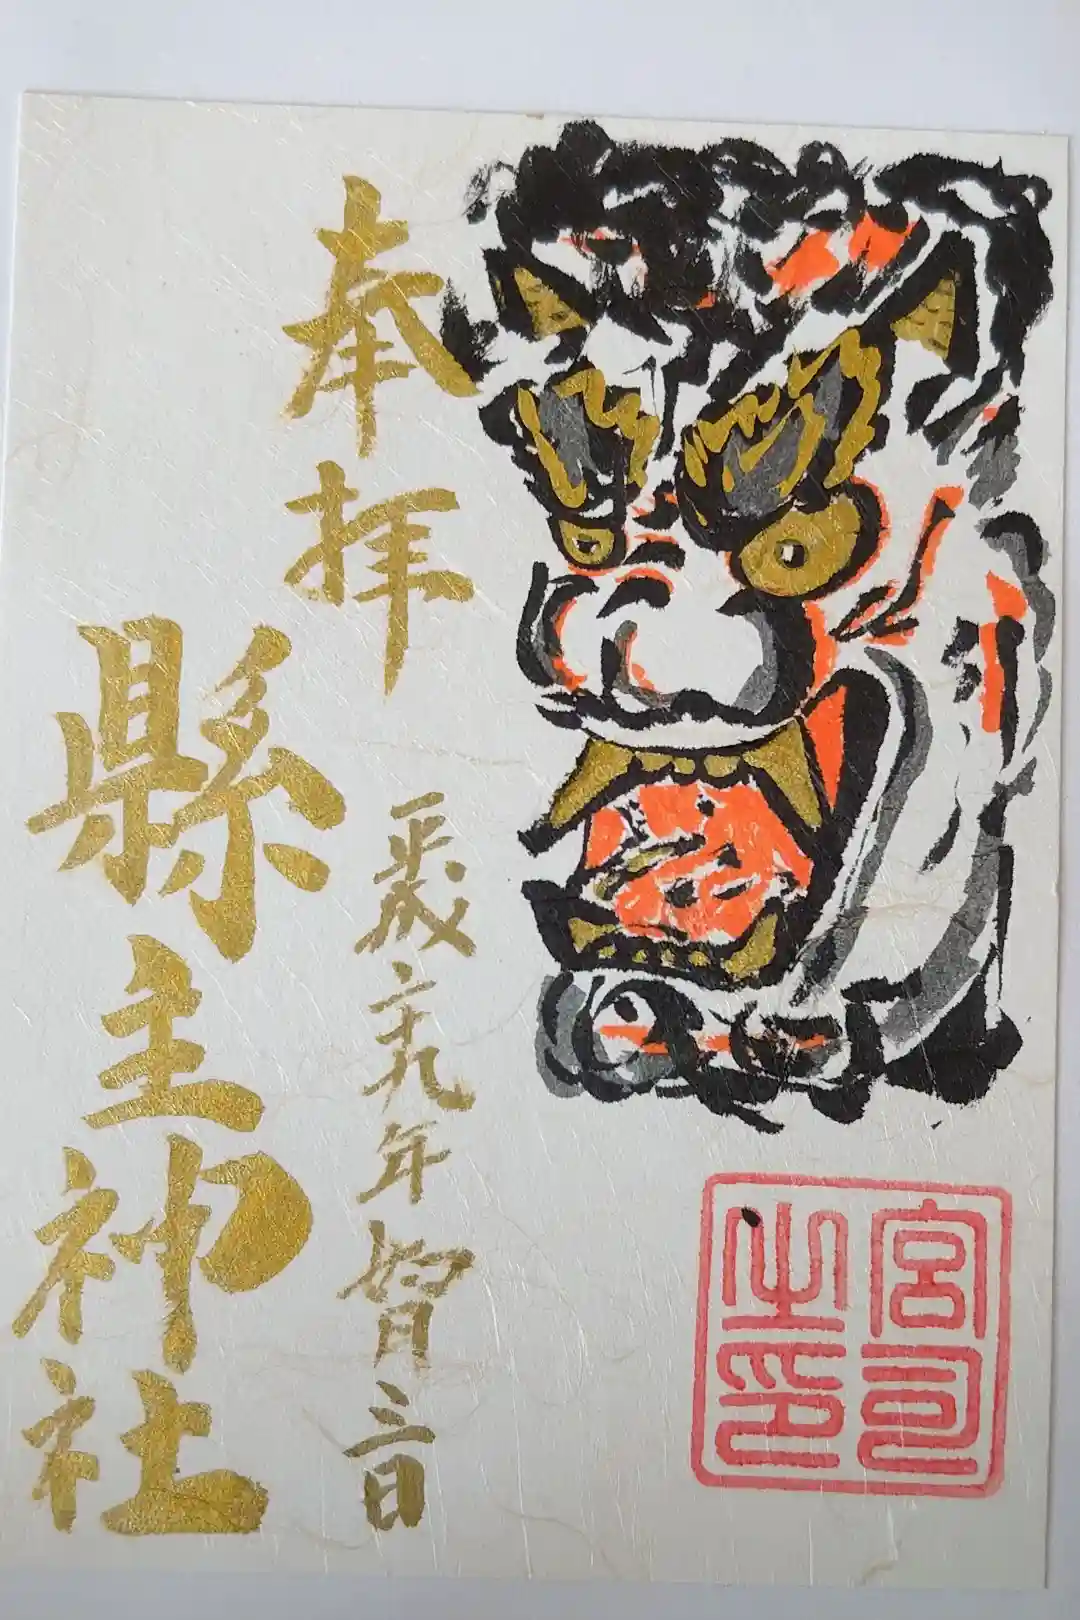 奉拝
平成二十九年 月 日
縣主神社
宮司之印